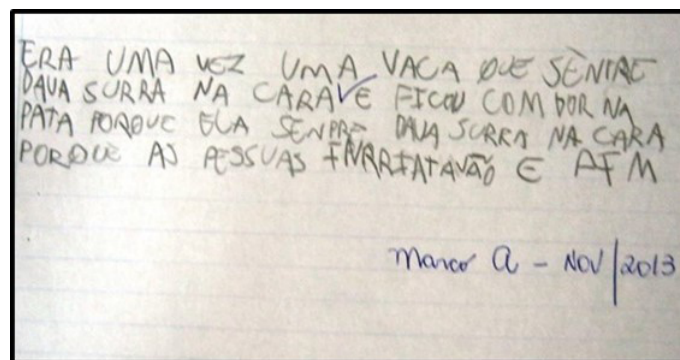 ERA UMA VEZ UMA VACA QUE SENTRE
DAVA SURRA NA CARA E FICOU COM DOR NA
PATA PORQUE ELA SENPRE DAVA SURRA NA CARA
PORQUE AS PESSUAS INRRITATAVÃO E AFM
Marco A - NOV/2013